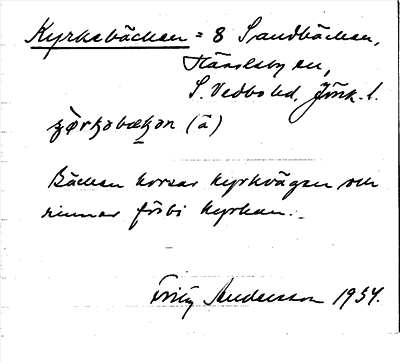 Kyrkebäcken = 8 Sandbäcken,
Hässleby sn,
S. Vedbo hd, Jönk. l.
(ä)
Bäcken korsar kyrkvägen och
rinner förbi kyrkan.
Fritz Andersson 1934.